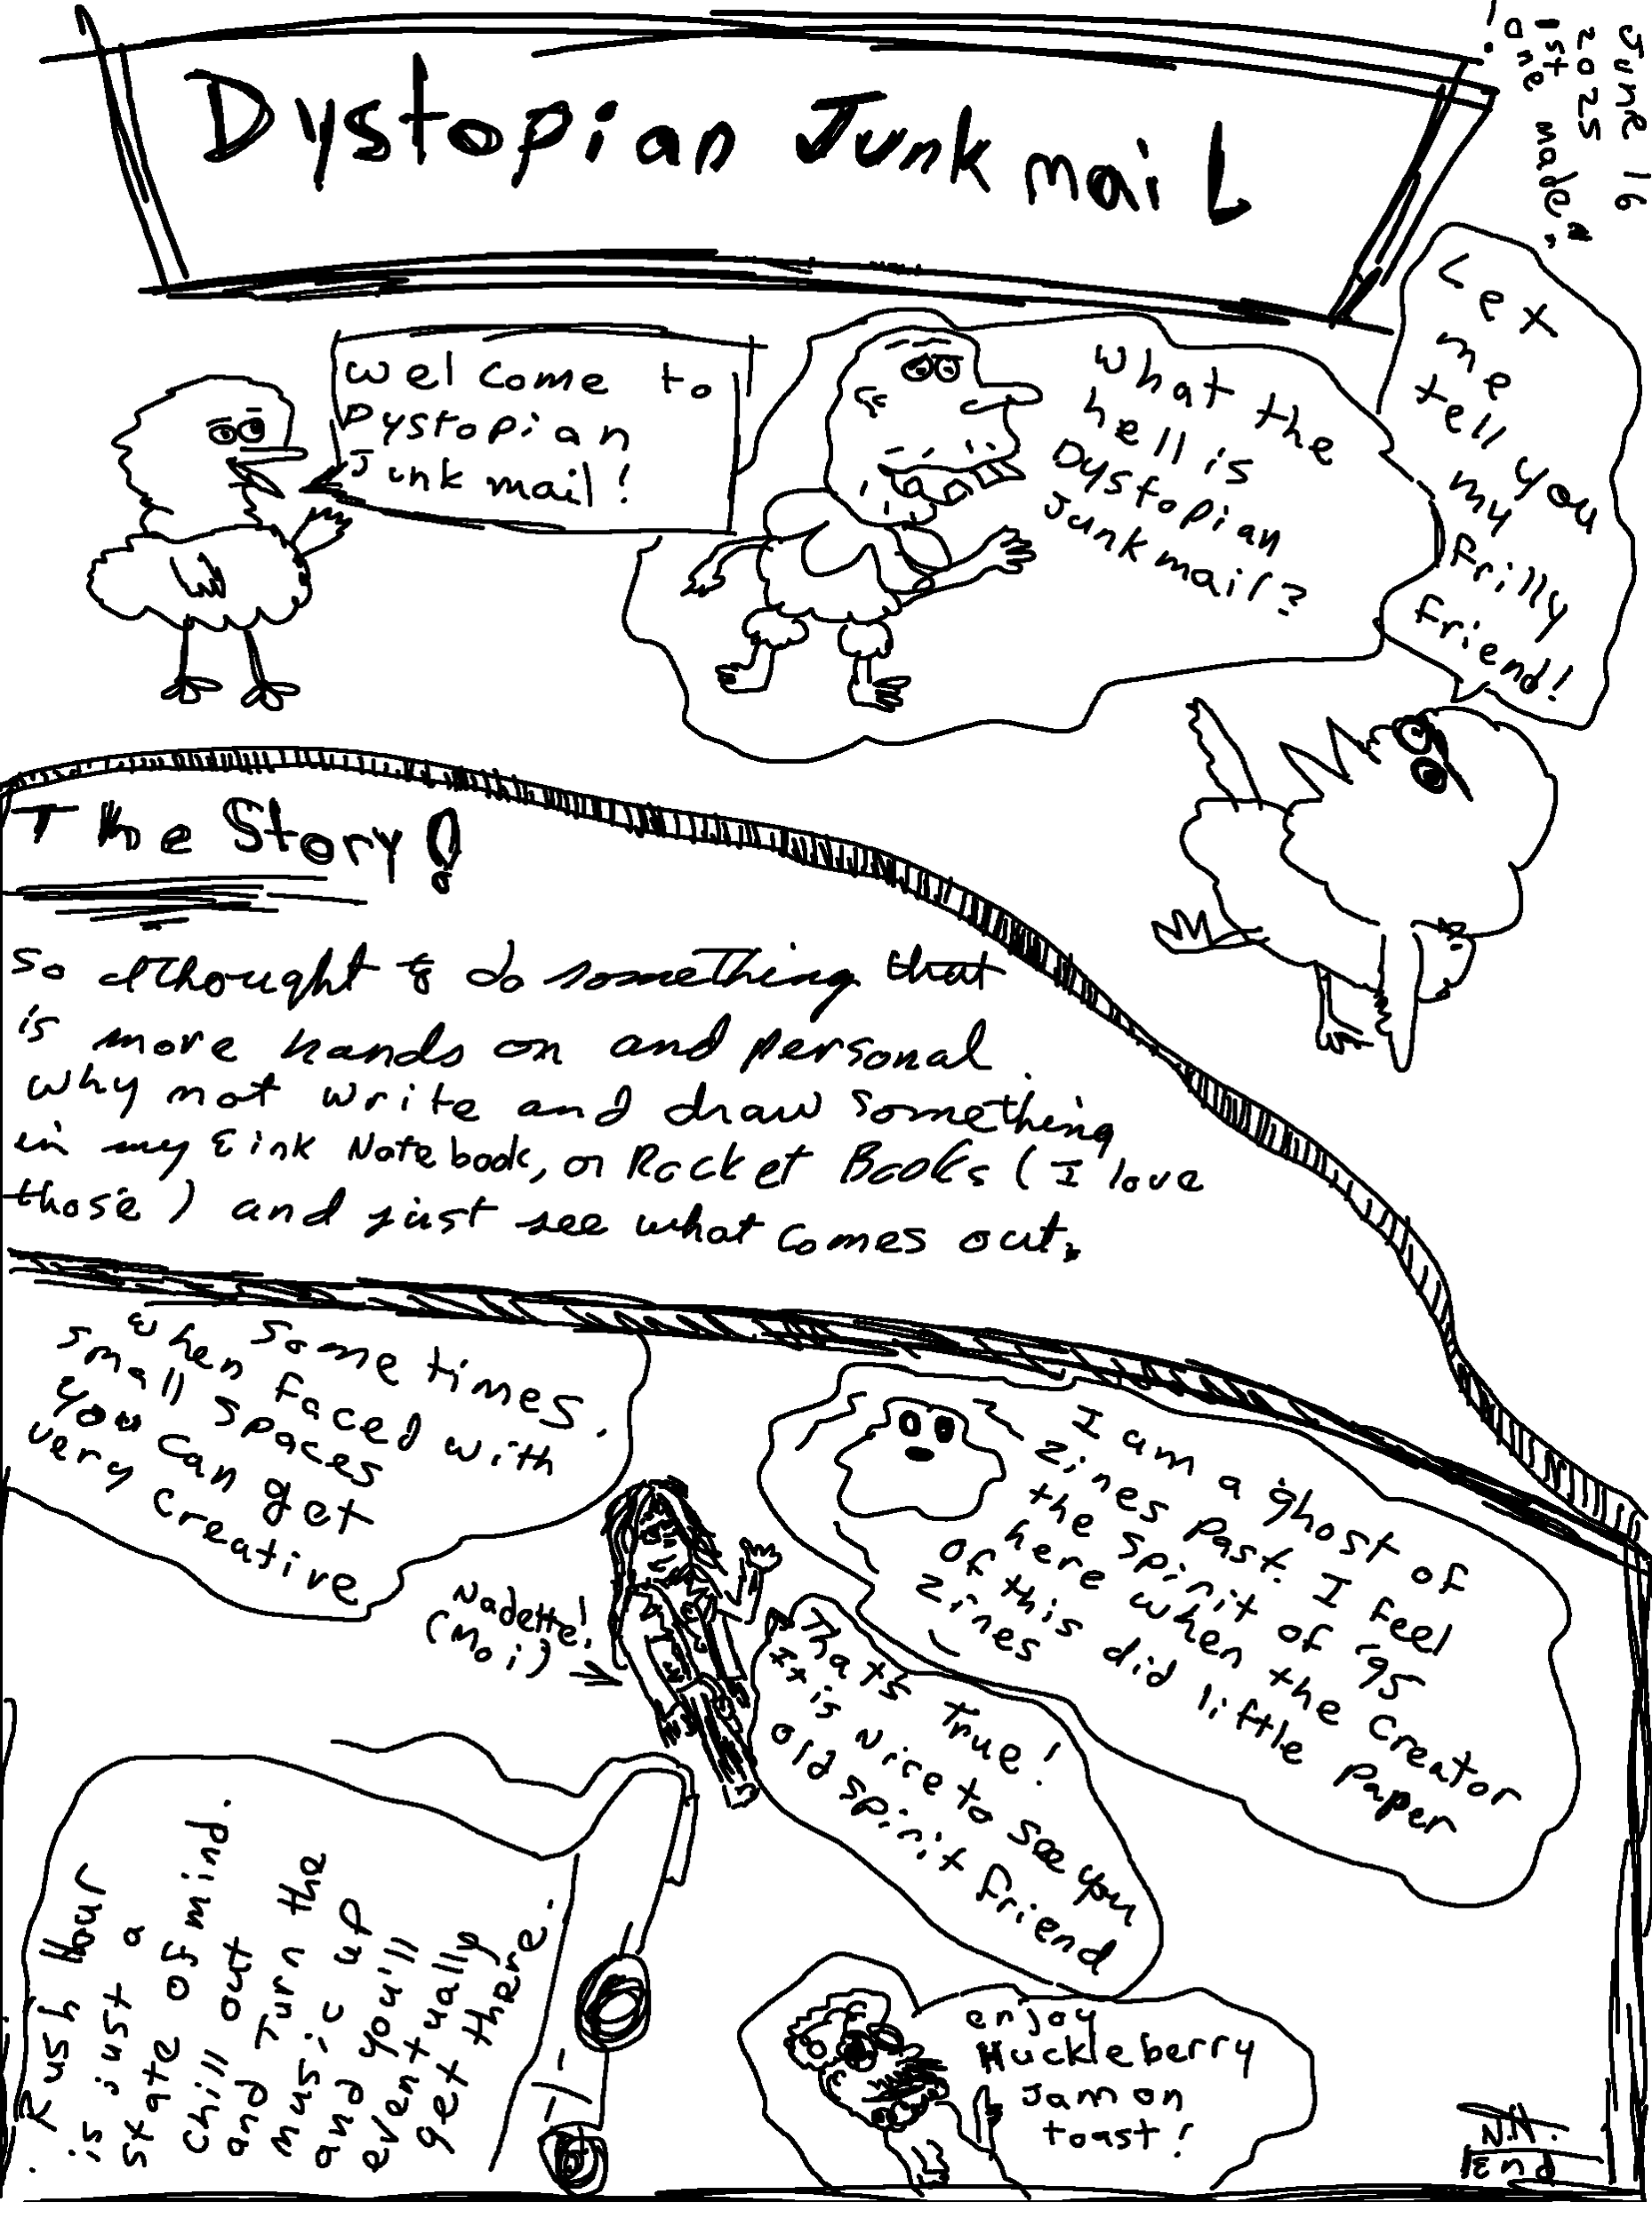 Dystopian Junk mail
June 16
2025
1st
one made!
welcome to
Dystopian
Junk mail!
what the
hell is
Dystopian
Junk mail?
Lex
me
tell you
my
frilly
friend!
The Story!
So I thought to do something that
is more hands on and personal.
why not write and draw something
in my Eink Notebook, or Rocket Books (I love
those) and just see what comes out.
Some times.
when faced with
small spaces
you can get
very creative
I am a ghost of
zines past. I feel
the spirit of '95
here when the creator
of this did little paper
zines
Nadette!
(Moi)
Thats True!
It is nice to see you
old spirit friend
Rush Hour
is just a
state of mind.
Chill out
and Turn the
music up
and you'll
eventually
get there.
enjoy
Huckleberry
Jam on
toast!
N.N.
End